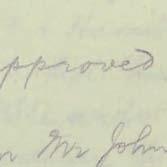 approved
Mr John